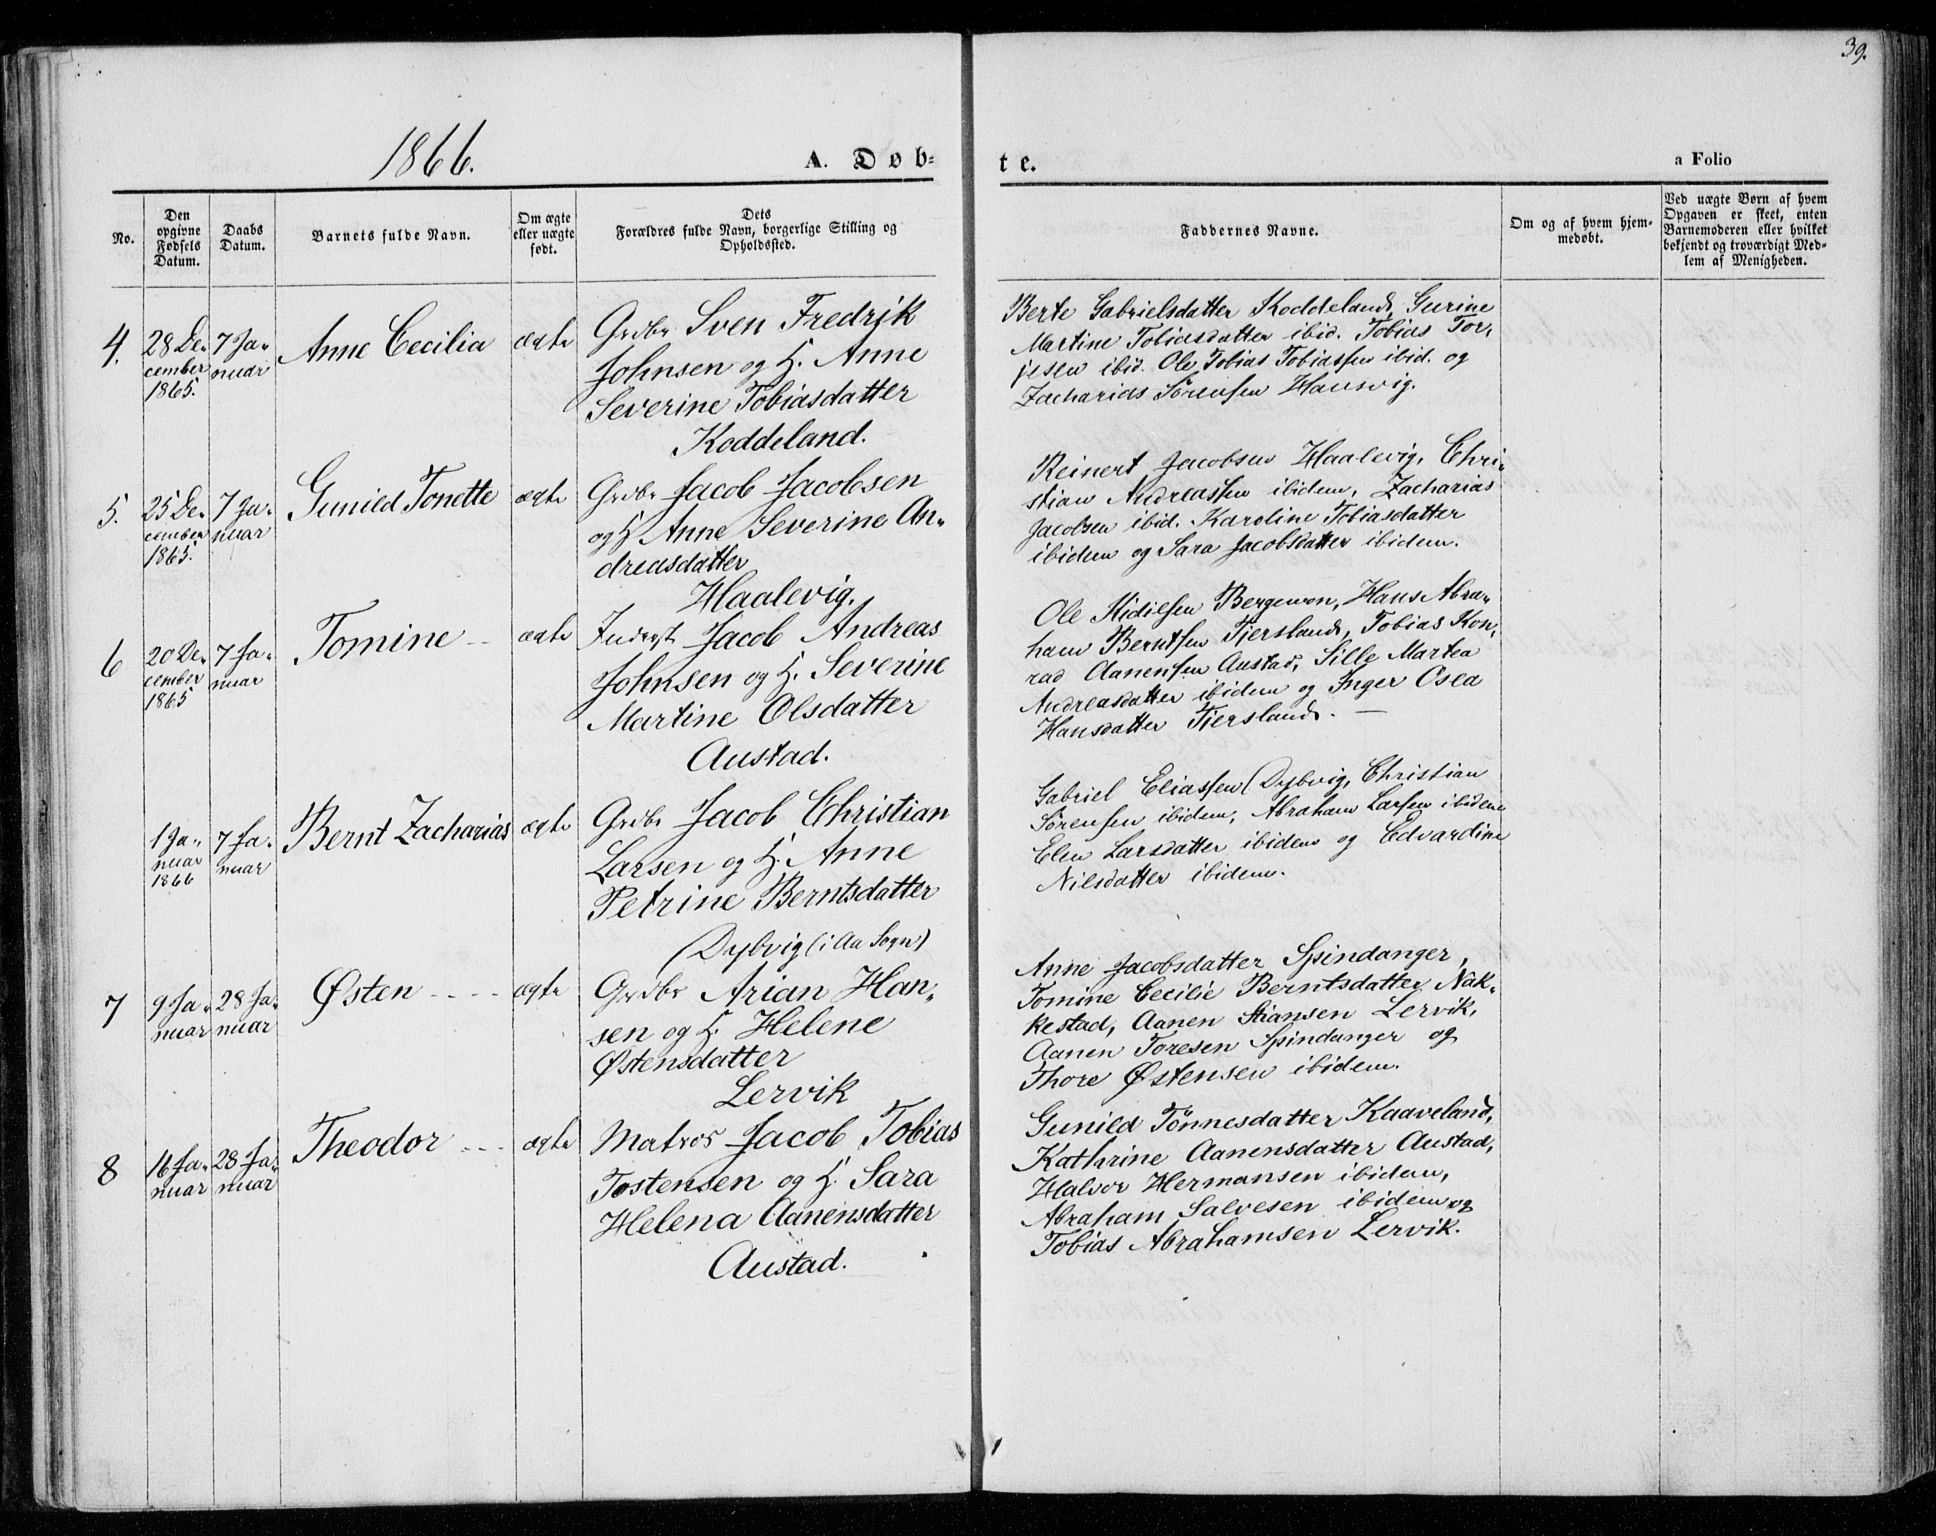 39.
1866.
A. Døb-
te.
a Folio
No.
Den
opgivne
Fødsels
Datum.
Daabs
Datum.
Barnets fulde Navn.
Om ægte
eller uægte
født.
Dets
Forældres fulde Navn, borgerlige Stilling og
Opholdssted.
Faddernes Navne.
Om og af hvem hjem-
medøbt.
Ved uægte Børn af hvem
Opgaven er skeet, enten
Barnemoderen eller hvilket
bekjendt og troværdigt Med-
lem af Menigheden.
4.
28 De-
cember
1865.
7 Ja-
nuar
Anne Cecilia
ægte
Grdbr Sven Fredrik
Johnsen og H. Anne
Severine Tobiasdatter
Koddeland.
Berte Gabrielsdatter Koddeland, Gurine
Martine Tobiasdatter ibid. Tobias Tor-
jesen ibid. Ole Tobias Tobiassen ibid. og
Zacharias Sørensen Hausvig.
5.
25 De-
cember
1865.
7 Ja-
nuar
Gunild Tonette
ægte
Grdbr Jacob Jacobsen
og H. Anne Severine An-
dreasdatter
Haalevig.
Reinert Jacobsen Haalevig, Chri-
stian Andreassen ibidem, Zacharias
Jacobsen ibid. Karoline Tobiasdatter
ibidem og Sara Jacobsdatter ibidem.
6
20 De-
cember
1865
7 Ja-
nuar
Tomine
ægte
Inderst Jacob Andreas
Johnsen og H. Severine
Martine Olsdatter
Austad.
Ole Kidilsen Bergemon, Hans Abra-
ham Berntsen Tjersland, Tobias Kon-
rad Aanensen Austad, Sille Martea
Andreasdatter ibidem og Inger Osea
Hansdatter Tjersland. —
1 Ja-
nuar
1866
7 Ja-
nuar
Bernt Zacharias
ægte
Grdbr Jacob Christian
Larsen og H. Anne
Petrine Berntsdatter
Dybvig (i Aa Sogn)
Gabriel Eliassen Dybvig, Christian
Sørensen ibidem, Abraham Larsen ibidem
Elen Larsdatter ibidem og Edvardine
Nilsdatter ibidem.
7
9 Ja-
nuar
28 Ja-
nuar
Østen
ægte
Grdbr Arian Han-
sen og H. Helene
Østensdatter
Lervik
Anne Jacobsdatter Spindanger,
Tomine Cecilie Berntsdatter Nak-
kestad, Aanen Stiansen Lervik,
Aanen Toresen Spindanger og
Thore Østensen ibidem.
8
16 Ja-
nuar
28 Ja-
nuar
Theodor
ægte
Matros Jacob Tobias
Tostensen og H. Sara
Helena Aanensdatter
Austad.
Gunild Tønnesdatter Kaaveland,
Kathrine Aanensdatter Austad,
Halvor Hermansen ibidem,
Abraham Salvesen ibidem og
Tobias Abrahamsen Lervik.